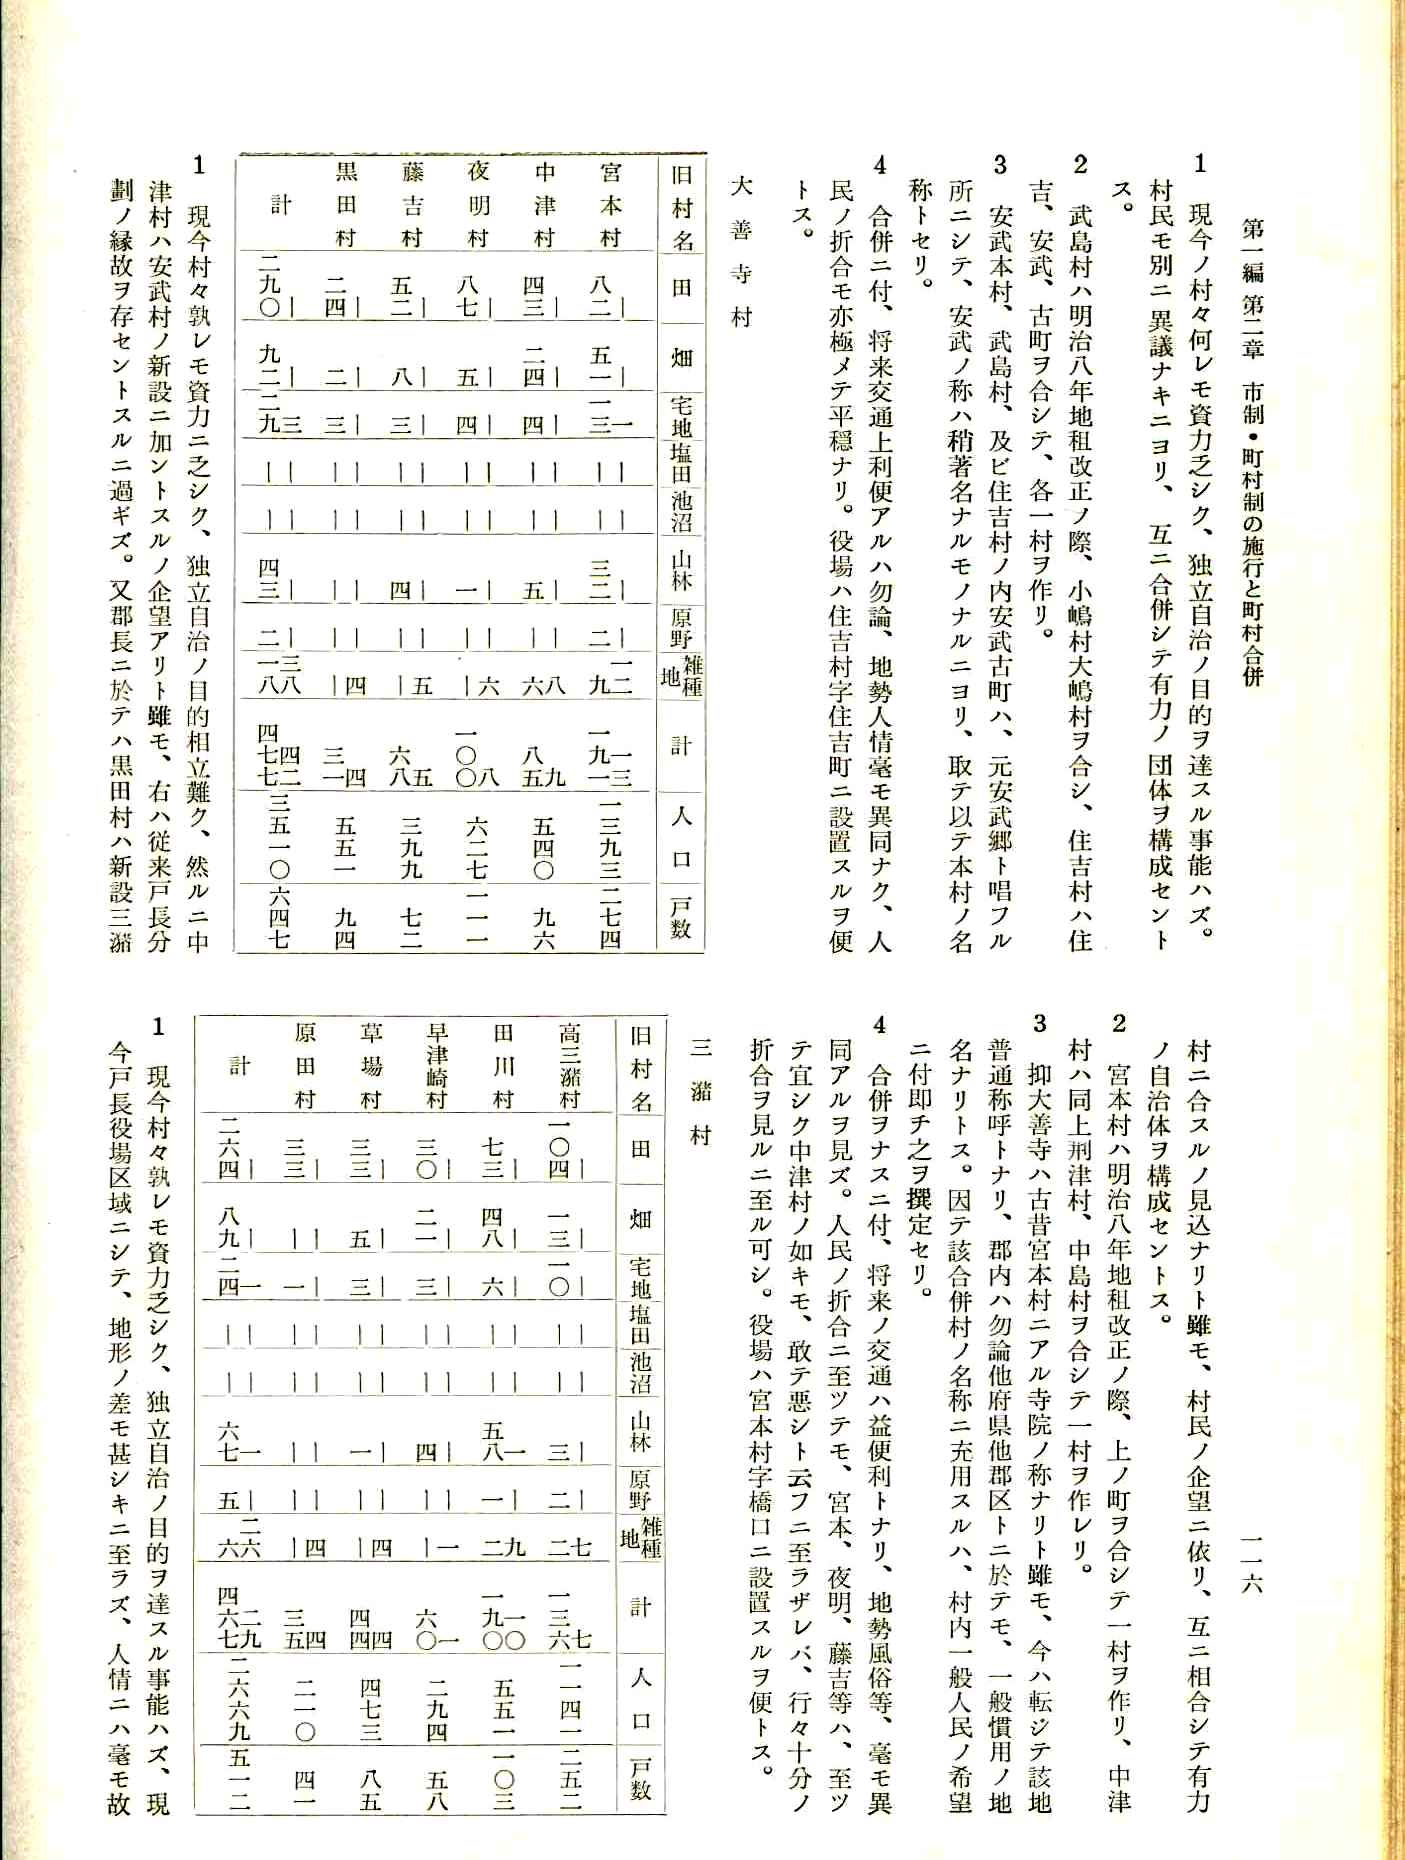 第一編 第二章 市制・町村制の施行と町村合併
一一六
1 現今ノ村々何レモ資力乏シク、独立自治ノ目的ヲ達スル事能ハズ。
村民モ別ニ異議ナキニヨリ、互ニ合併シテ有力ノ団体ヲ構成セント
ス。
2 武島村ハ明治八年地租改正ノ際、小嶋村大嶋村ヲ合シ、住吉村ハ住
吉、安武、古町ヲ合シテ、各一村ヲ作リ。
3 安武本村、武島村、及ビ住吉村ノ内安武古町ハ、元安武郷ト唱フル
所ニシテ、安武ノ称ハ稍著名ナルモノナルニヨリ、取テ以テ本村ノ名
称トセリ。
4 合併ニ付、将来交通上利便アルハ勿論、地勢人情毫モ異同ナク、人
民ノ折合モ亦極メテ平穏ナリ。役場ハ住吉村字住吉町ニ設置スルヲ便
トス。
大善寺村
旧村名 田 畑 宅地 塩田 池沼 山林 原野 雑種地 計 人口 戸数
宮本村 |八二 |五一 一一三 || || |三二 |二 二一九 一三一九一 一三九三 二七四
中津村 |四三 |二四 |四 || || |五 || 八六 九八五 五四〇 九六
夜明村 |八七 |五 |四 || || |一 || 六| 八一〇〇 六二七 一一一
藤吉村 |五二 |八 |三 || || |四 || 五| 五六八 三九九 七二
黒田村 |二四 |二 |三 || || || || 四| 四三一 五五一 九四
計 |二九〇 |九二 三二九 || || |四三 |二 三八一八 四二四七七 三五一〇 六四七
1 現今村々孰レモ資力ニ乏シク、独立自治ノ目的相立難ク、然ルニ中
津村ハ安武村ノ新設ニ加ントスルノ企望アリト雖モ、右ハ従来戸長分
劃ノ縁故ヲ存セントスルニ過ギズ。又郡長ニ於テハ黒田村ハ新設三潴
村ニ合スルノ見込ナリト雖モ、村民ノ企望ニ依リ、互ニ相合シテ有力
ノ自治体ヲ構成セントス。
2 宮本村ハ明治八年地租改正ノ際、上ノ町ヲ合シテ一村ヲ作リ、中津
村ハ同上刑津村、中島村ヲ合シテ一村ヲ作レリ。
3 抑大善寺ハ古昔宮本村ニアル寺院ノ称ナリト雖モ、今ハ転ジテ該地
普通称呼トナリ、郡内ハ勿論他府県他郡区トニ於テモ、一般慣用ノ地
名ナリトス。因テ該合併村ノ名称ニ充用スルハ、村内一般人民ノ希望
ニ付即チ之ヲ撰定セリ。
4 合併ヲナスニ付、将来ノ交通ハ益便利トナリ、地勢風俗等、毫モ異
同アルヲ見ズ。人民ノ折合ニ至ツテモ、宮本、夜明、藤吉等ハ、至ツ
テ宜シク中津村ノ如キモ、敢テ悪シト云フニ至ラザレバ、行々十分ノ
折合ヲ見ルニ至ル可シ。役場ハ宮本村字橋口ニ設置スルヲ便トス。
三潴村
旧村名 田 畑 宅地 塩田 池沼 山林 原野 雑種地 計 人口 戸数
高三潴村 |一〇四 |一三 |一〇 || || |三 |二 七二 七一三六 一一四一 二五二
田川村 |七三 |四八 |六 || || 一五八 |一 九二 一〇一九〇 五五一 一〇三
早津崎村 |三〇 |二一 |三 || || |四 || 一| 一六〇 二九四 五八
草場村 |三三 |五 |三 || || |一 || 四| 四四四 四七三 八五
原田村 |三三 || |一 || || || || 四| 四三五 二一〇 四一
計 |二六四 |八九 一二四 || || 一六七 |五 二六六 二九四六七 二六六九 五一二
1 現今村々孰レモ資力乏シク、独立自治ノ目的ヲ達スル事能ハズ、現
今戸長役場区域ニシテ、地形ノ差モ甚シキニ至ラズ、人情ニハ毫モ故